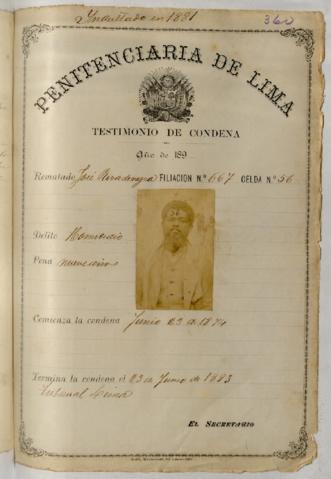 Indultado en 1881
360
PENITENCIARIA DE LIMA
TESTIMONIO DE CONDENA
Año de 189
Rematado José FILIACION N.º 667 CELDA N.º 56
Delito Homicidio
Pena nueve años
Comienza la condena Junio 23 de 1874
Termina la condena el 23 de Junio de 1883
Tribunal Lima
EL SECRETARIO